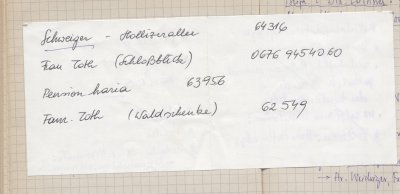 Schweiger - Hollitzerallee 64316
Frau Toth (Schloßblick) 0676 9454060
Pension Maria 63956
Fam. Toth (Waldschenke) 62549